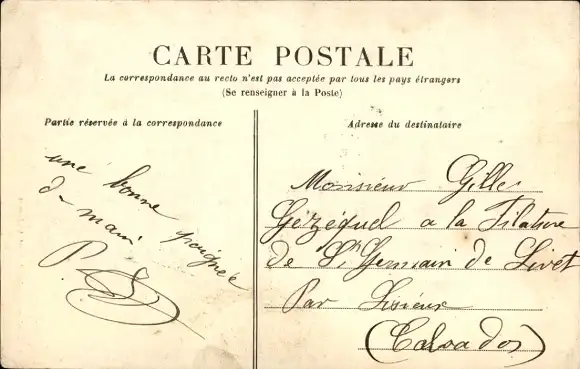 CARTE POSTALE
La correspondance au recto n'est pas acceptée par tous les pays étrangers
(Se renseigner à la Poste)
Partie réservée à la correspondance
Adresse du destinataire
une bonne poignée
de main
Monsieur Gilles
Gézéquel a la Filature
de St Germain de Livet
Par Lisieux
(Calvados)